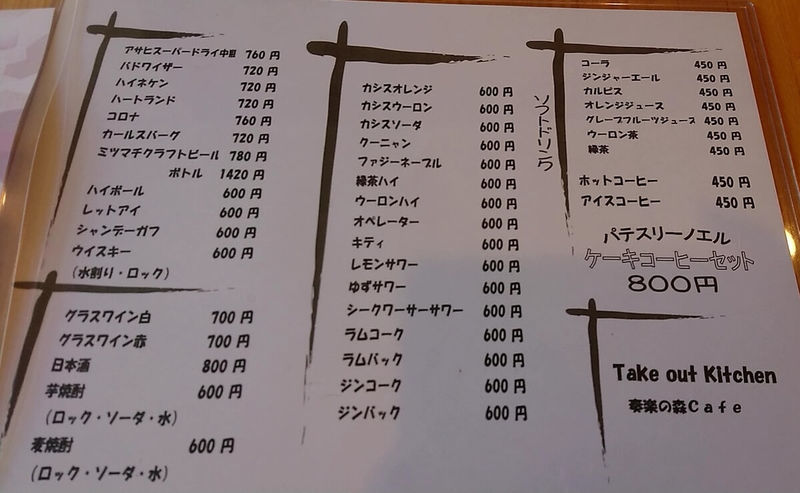 アサヒスーパードライ中瓶 760円
バドワイザー 720円
ハイネケン 720円
ハートランド 720円
コロナ 760円
カールスバーグ 720円
ミツマチクラフトビール 780円
ボトル 1420円
ハイボール 600円
レットアイ 600円
シャンデーガフ 600円
ウイスキー 600円
(水割り・ロック)
グラスワイン白 700円
グラスワイン赤 700円
日本酒 800円
芋焼酎 600円
(ロック・ソーダ・水)
麦焼酎 600円
(ロック・ソーダ・水)
カシスオレンジ 600円
カシスウーロン 600円
カシスソーダ 600円
クーニャン 600円
ファジーネーブル 600円
緑茶ハイ 600円
ウーロンハイ 600円
オペレーター 600円
キティ 600円
レモンサワー 600円
ゆずサワー 600円
シークワーサーサワー 600円
ラムコーク 600円
ラムバック 600円
ジンコーク 600円
ジンバック 600円
ソフトドリンク
コーラ 450円
ジンジャーエール 450円
カルピス 450円
オレンジジュース 450円
グレープフルーツジュース 450円
ウーロン茶 450円
緑茶 450円
ホットコーヒー 450円
アイスコーヒー 450円
パテスリーノエル
ケーキコーヒーセット
800円
Take out Kitchen
奏楽の森Cafe